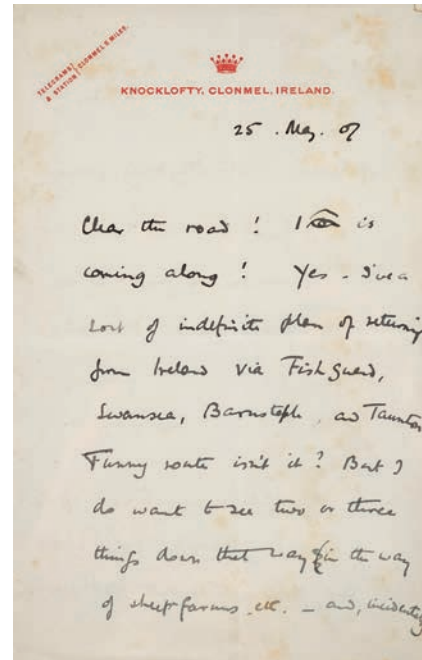 TELEGRAMS
& STATION } CLONMEL 5 MILES.
KNOCKLOFTY, CLONMEL, IRELAND.
25. May. 07
Clear the road! I is
coming along! Yes - I've a
sort of indefinite plan of returning
from Ireland via Fishguard,
Swansea, Barnstaple, and Taunton
Funny route isn't it? But I
do want to see two or three
things down that way in the way
of sheep farms, etc. - and, incidentally